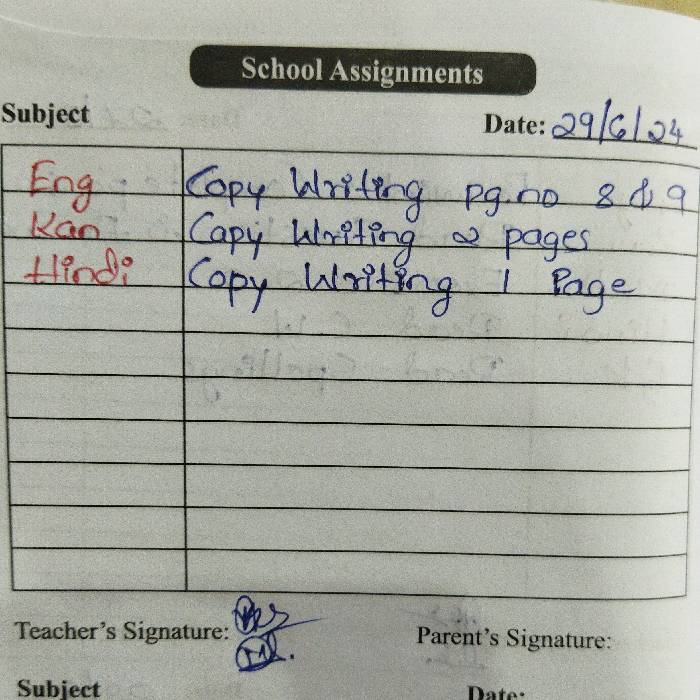 School Assignments
Subject Date: 29/6/24
Eng Copy Writing pg.no 8 & 9
Kan Capy Writing 2 pages
Hindi Copy Writing 1 Page
Teacher's Signature: Parent's Signature:
Subject Date: